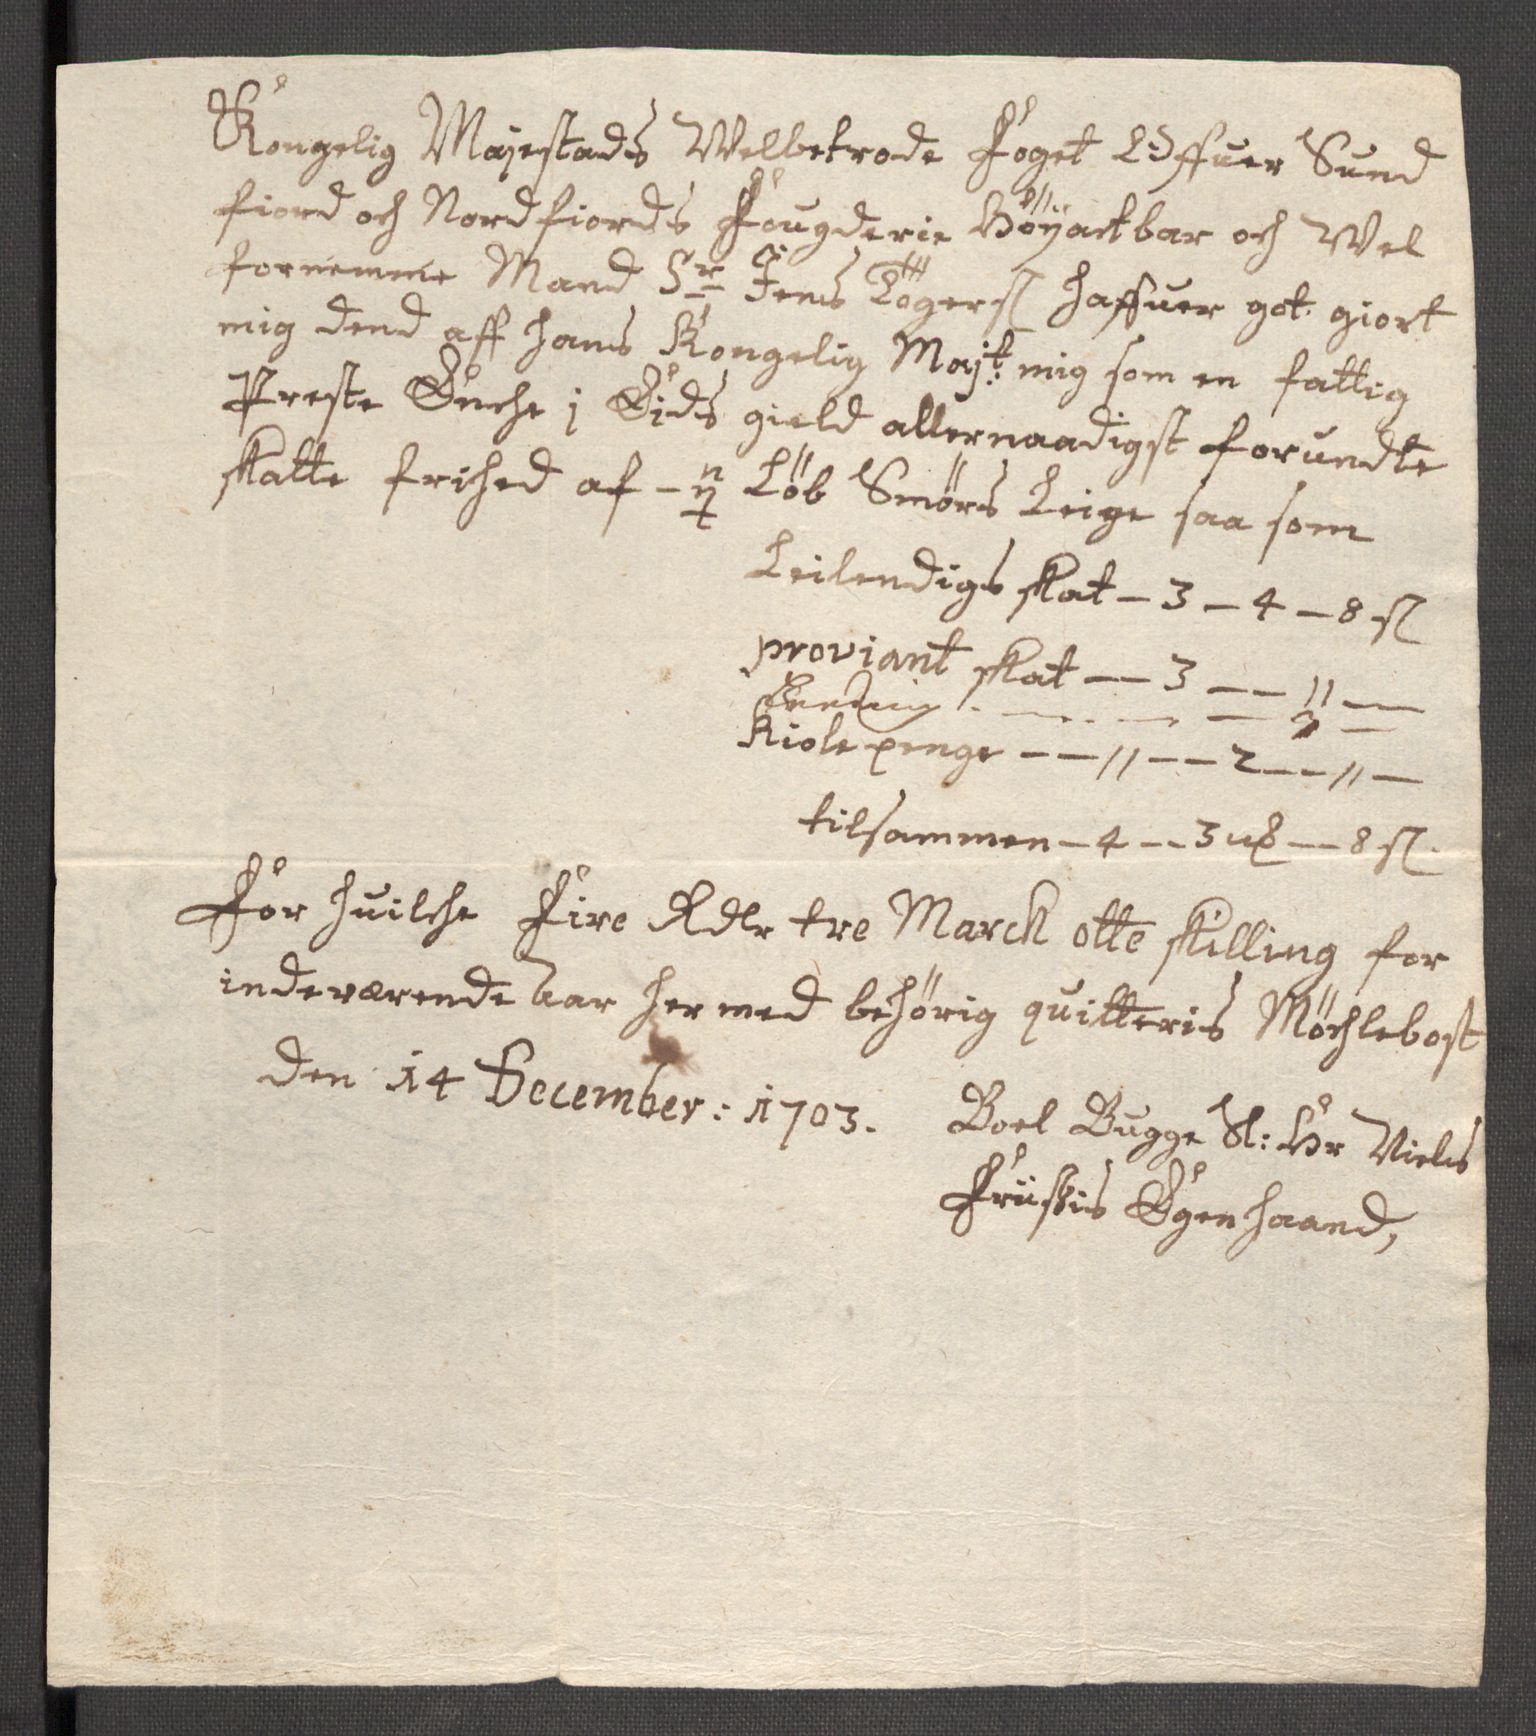 Kongelig Majestads Welbetrode Foget Offuer Sund
fiord och Nordfiords Fougderie Höÿactbar och Wel
fornemme Mand Sr Jens Lögersl haffuer got giort
mig dend aff hans Kongelig Majt: mig som en fattig
Preste Enche i Eids gield allernaadigst forundte
skatte frihed af - Löb Smörs Leige saa som
Leilendigs skat - 3 - 4 - 8 sl
proviant skat - 3 - " -
Kiole penge - " - 2 - " -
tilsammen - 4 - 3 - 8 sl
For huilche Fire Rdlr tre Marck otte skilling for
indeværende aar hermed behörig quitteris Möchlebost
den 14 December: 1703.
Boel Bugge Sl: Hr Niels
Friisis Egen haand,